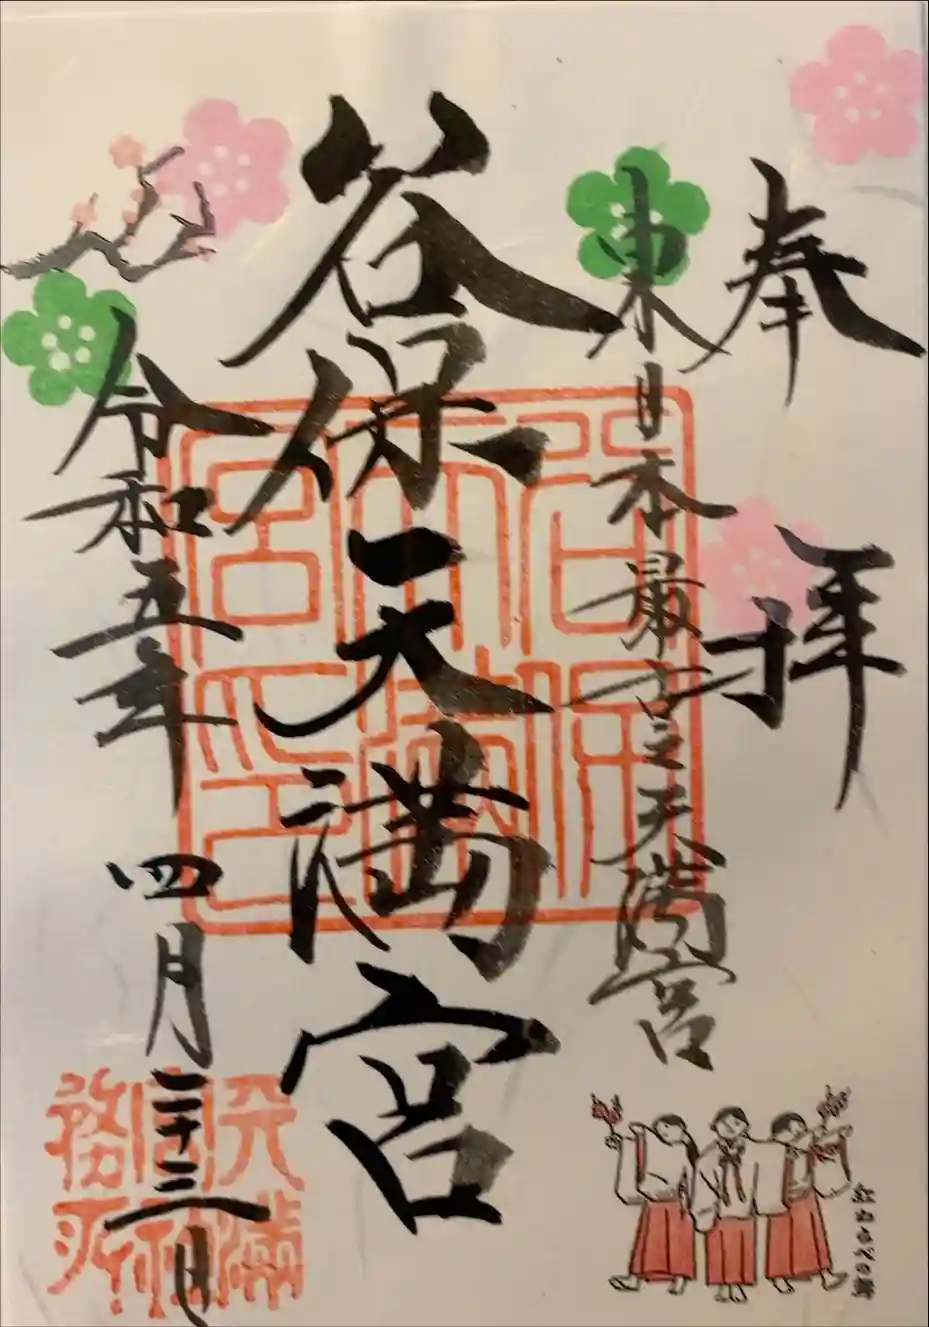 奉拝
東日本最古之天満宮
谷保天満宮
谷保天満宮之印
令和五年四月二十三日
天満宮社務所